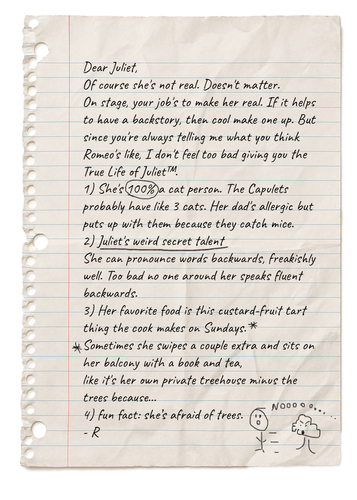 Dear Juliet,
Of course she's not real. Doesn't matter.
On stage, your job's to make her real. If it helps
to have a backstory, then cool make one up. But
since you're always telling me what you think
Romeo's like, I don't feel too bad giving you the
True Life of Juliet™.
1) She's 100% a cat person. The Capulets
probably have like 3 cats. Her dad's allergic but
puts up with them because they catch mice.
2) Juliet's weird secret talent
She can pronounce words backwards, freakishly
well. Too bad no one around her speaks fluent
backwards.
3) Her favorite food is this custard-fruit tart
thing the cook makes on Sundays.*
*Sometimes she swipes a couple extra and sits on
her balcony with a book and tea,
like it's her own private treehouse minus the
trees because...
4) fun fact: she's afraid of trees.
- R
NOOOO....